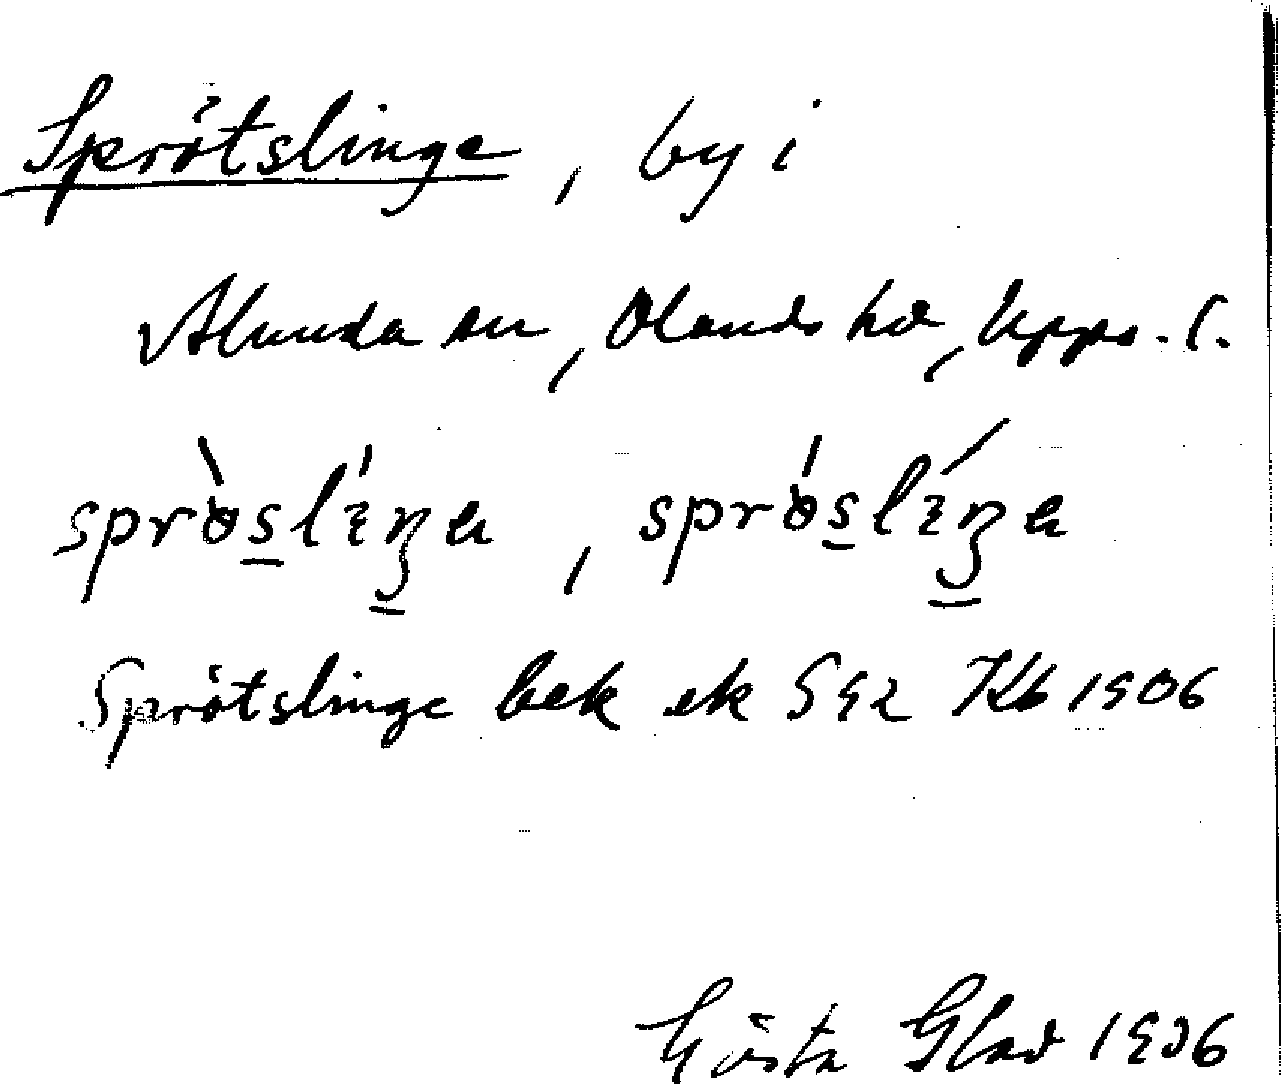 Sprötslinge, by i
Alunda sn, Olands hd, Upps. l.
sprɵ̀slíŋa, sprɵ̀slíŋa
Sprötslinge bek ek G92 Kb 1906
Gösta Glad 1906